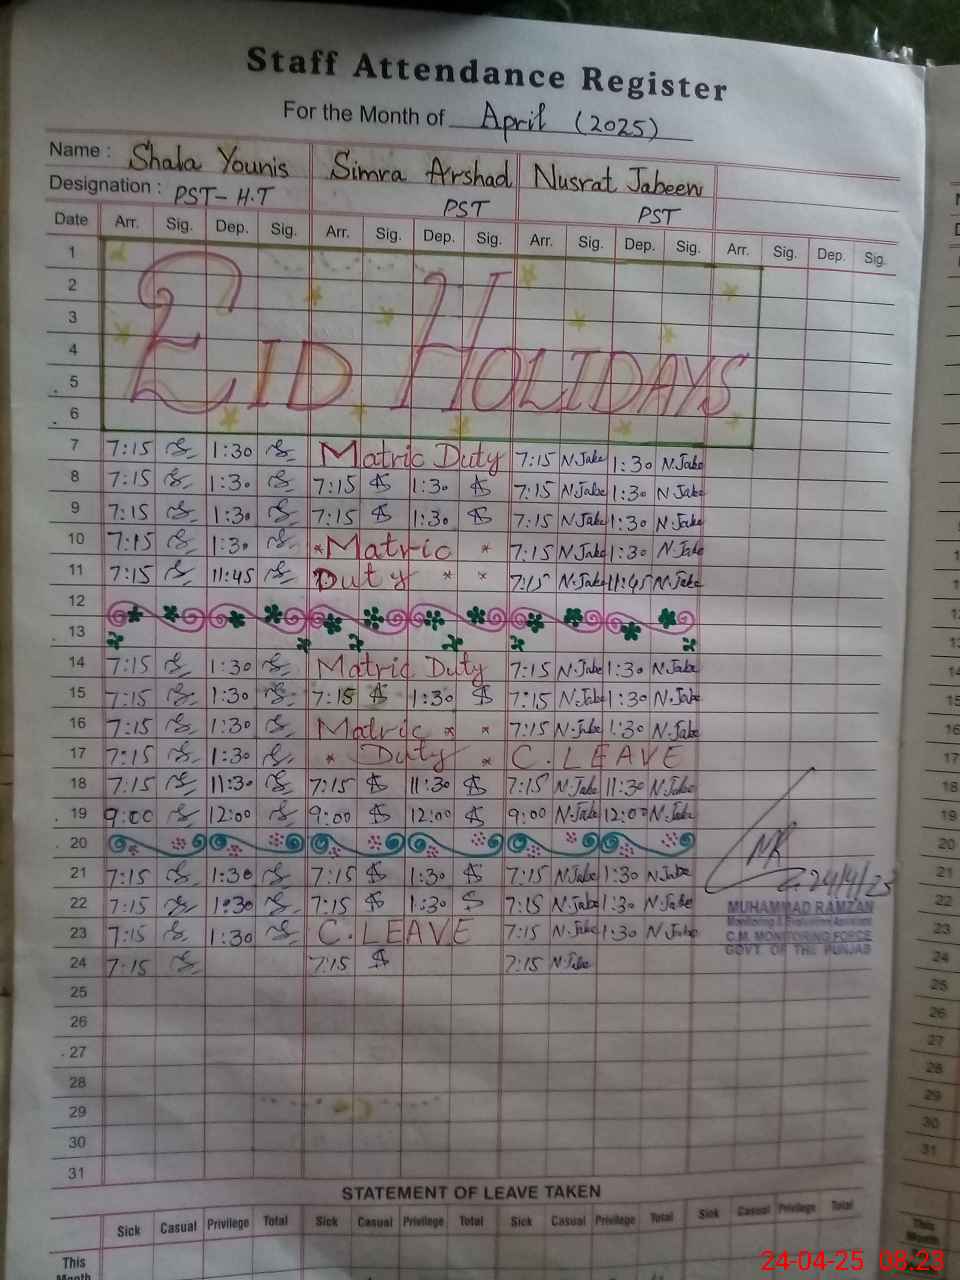 Staff Attendance Register
For the Month of April (2025)
Name : Shala Younis Simra Arshad Nusrat Jabeen
Designation : PST-H.T PST PST
Date Arr. Sig. Dep. Sig. Arr. Sig. Dep. Sig. Arr. Sig. Dep. Sig. Arr. Sig. Dep. Sig.
1
2
3
4
EID HOLIDAYS
5
6
7 7:15 1:30 Matric Duty 7:15 N.Jabe 1:30 N.Jabe
8 7:15 1:30 7:15 1:30 7:15 N.Jabe 1:30 N.Jabe
9 7:15 1:30 7:15 1:30 7:15 N.Jabe 1:30 N.Jabe
10 7:15 1:30 *Matric * 7:15 N.Jabe 1:30 N.Jabe
11 7:15 11:45 Duty * * 7:15 N.Jabe 11:45 N.Jabe
12
13
14 7:15 1:30 Matric Duty 7:15 N.Jabe 1:30 N.Jabe
15 7:15 1:30 7:15 1:30 7:15 N.Jabe 1:30 N.Jabe
16 7:15 1:30 Matric * * 7:15 N.Jabe 1:30 N.Jabe
17 7:15 1:30 * Duty * C.LEAVE
18 7:15 11:30 7:15 11:30 7:15 N.Jabe 11:30 N.Jabe
19 9:00 12:00 9:00 12:00 9:00 N.Jabe 12:00 N.Jabe
20
21 7:15 1:30 7:15 1:30 7:15 N.Jabe 1:30 N.Jabe
24/4/25
22 7:15 1:30 7:15 1:30 7:15 N.Jabe 1:30 N.Jabe
MUHAMMAD RAMZAN
Monitoring & Evaluation Assistant
23 7:15 1:30 C.LEAVE 7:15 N.Jabe 1:30 N.Jabe
C.M. MONITORING FORCE
GOVT. OF THE PUNJAB
24 7:15 7:15 7:15 N.Jabe
25
26
27
28
29
30
31
STATEMENT OF LEAVE TAKEN
Sick Casual Privilege Total Sick Casual Privilege Total Sick Casual Privilege Total Sick Casual Privilege Total
This
Month
24-04-25 08:23